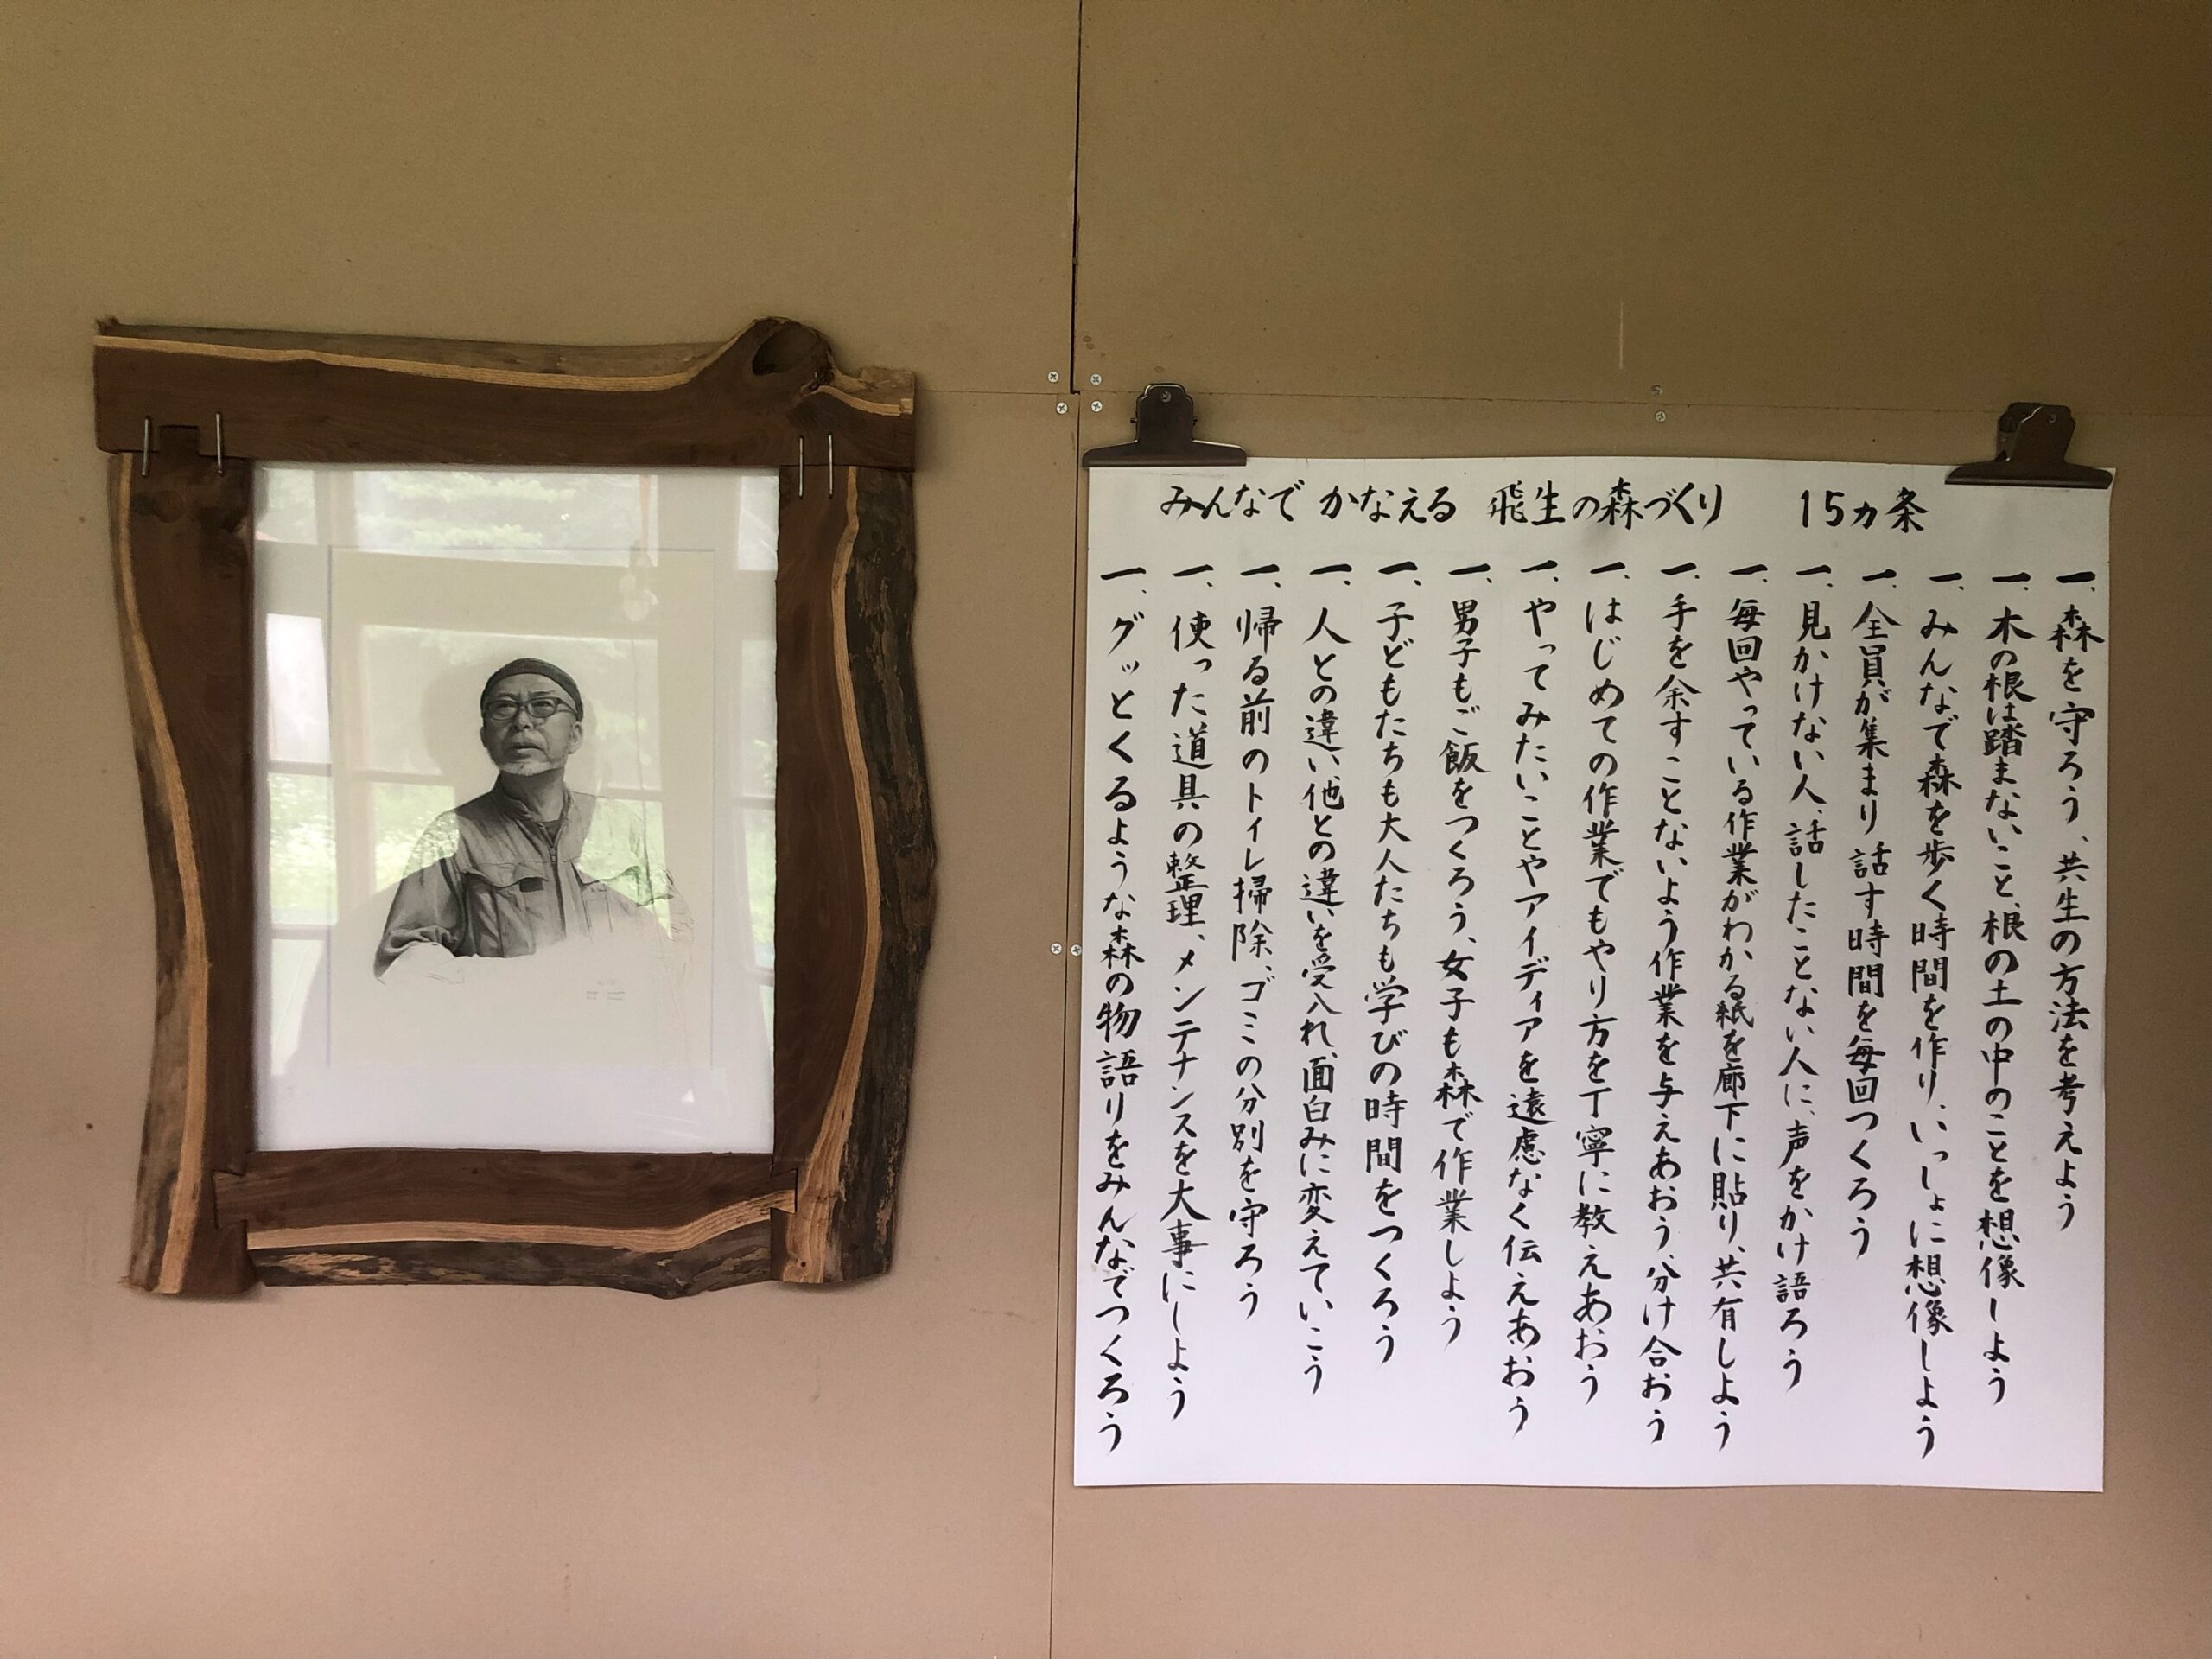 みんなで かなえる 飛生の森づくり 15ヵ条
一、森を守ろう、共生の方法を考えよう
一、木の根は踏まないこと、根の土の中のことを想像しよう
一、みんなで森を歩く時間を作り、いっしょに想像しよう
一、全員が集まり話す時間を毎回つくろう
一、見かけない人、話したことない人に、声をかけ語ろう
一、毎回やっている作業がわかる紙を廊下に貼り、共有しよう
一、手を余すことないよう作業を与えあおう、分け合おう
一、はじめての作業でもやり方を丁寧に教えあおう
一、やってみたいことやアイディアを遠慮なく伝えあおう
一、男子もご飯をつくろう、女子も森で作業しよう
一、子どもたちも大人たちも学びの時間をつくろう
一、人との違い、他との違いを受入れ、面白みに変えていこう
一、帰る前のトイレ掃除、ゴミの分別を守ろう
一、使った道具の整理、メンテナンスを大事にしよう
一、グッとくるような森の物語りをみんなでつくろう